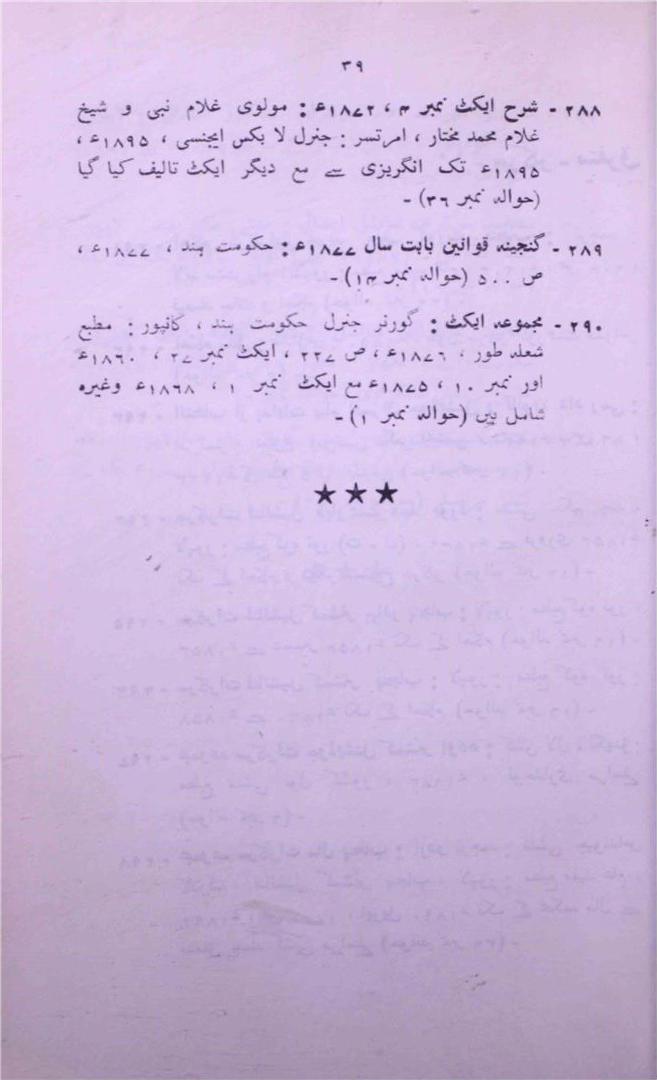 ۳۹
۲۸۸ - شرح ایکٹ نمبر ۴ ، ۱۸۷۲ء : مولوی غلام نبی و شیخ
غلام محمد مختار ، امرتسر : جنرل لا بکس ایجنسی ، ۱۸۹۵ء ،
۱۸۹۵ء تک انگریزی سے مع دیگر ایکٹ تالیف کیا گیا
(حوالہ نمبر ۳۶) -
۲۸۹ - گنجینہ قوانین بابت سال ۱۸۷۷ء : حکومت ہند ، ۱۸۷۷ء ،
ص ۵۰۰ (حوالہ نمبر ۱۴) -
۲۹۰ - مجموعہ ایکٹ : گورنر جنرل حکومت ہند ، کانپور : مطبع
شعلہ طور ، ۱۸۷۶ء ، ص ۲۲۷ ، ایکٹ نمبر ۲۷ ، ۱۸۶۰ء
اور نمبر ۱۰ ، ۱۸۷۵ء مع ایکٹ نمبر ۱ ، ۱۸۶۸ء وغیرہ
شامل ہیں (حوالہ نمبر ۱) -
★ ★ ★